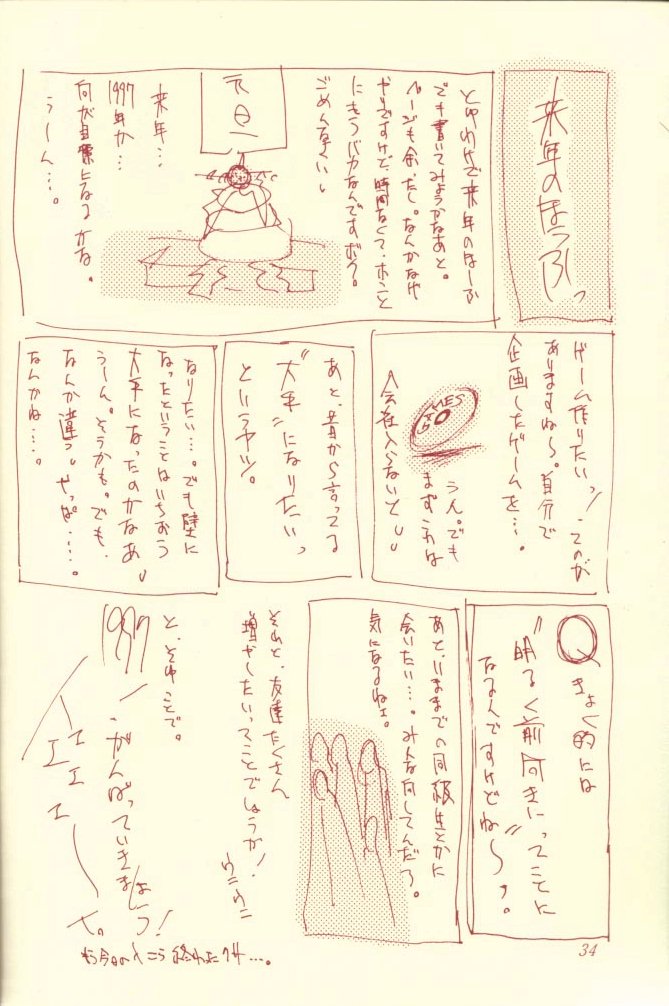 来年のほうふっ
とゆわけで来年のほーふ
でも書いてみようかなあと。
ページも余ったし。なんかなげ
やりですけど、時間なくて、ホンと
にもうバカなんですボク。
ごめんなさいし
元旦
来年…
1997年か…
何が目標になるかな。
うーん…。
ゲーム作りたいっ!てのが
ありますね〜。自分で
企画したゲームを…。
GAMES
うん。でも
まずこれは
会社入らないとし
あと、昔から言ってる
"大手"になりたいっ
というヤツ。
なりたい…。でも壁に
なったということはいちおう
大手になったのかなあし
うーん。そうかも。でも、
なんか違う。やっぱ……。
なんかね……。
Qきょく的には
"明るく前向きに"ってことに
なるんですけどね〜っ。
あと、いままでの同級生とかに
会いたい…。みんな何してんだろ。
気になるねェ。
それと、友達たくさん
増やしたいってことでしょうか!
ウニウニ
と、そゆことで。
1997
がんばっていきましょう!
エエエ
34